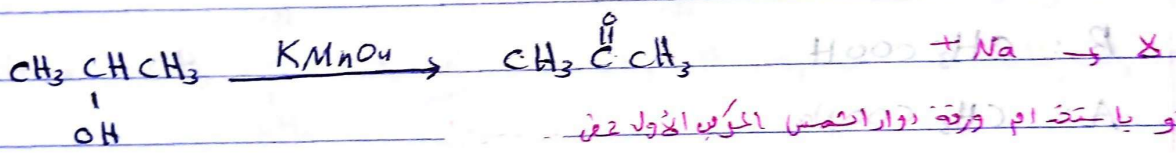 CH₃ CH CH₃ —KMnO₄→ CH₃ C CH₃ + Na → X
OH
O
و باستخدام ورقة دوار الشمس المركب الأول حمض